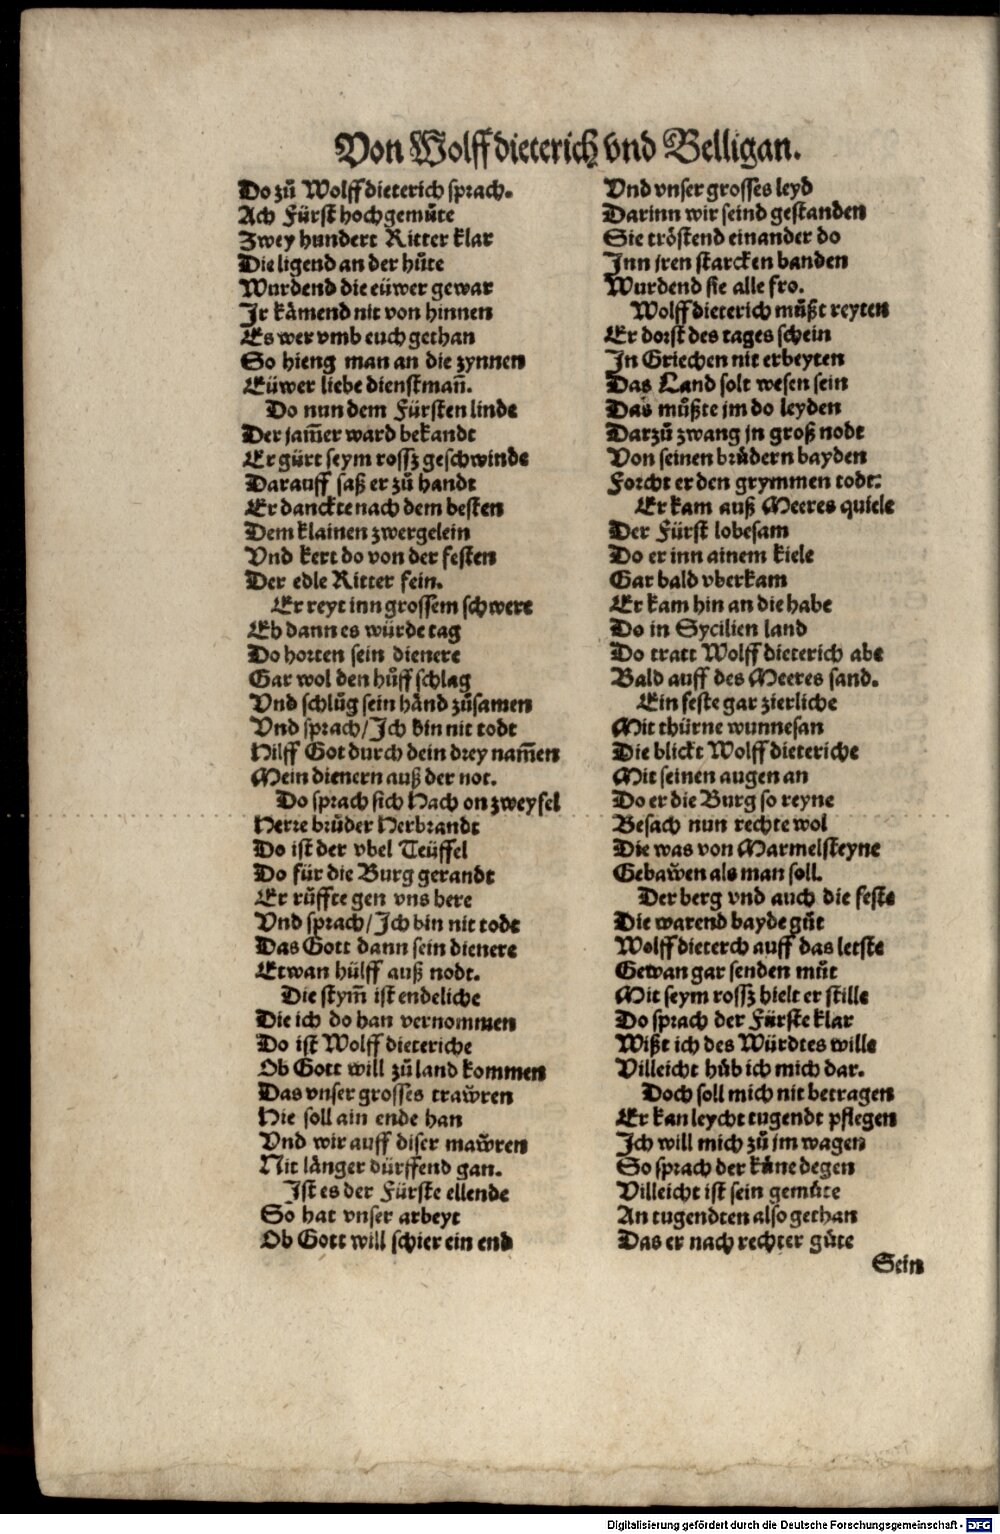 Von Wolffdieterich vnd Belligan.
Do zů Wolffdieterich sprach.
Ach Fürst hochgemůte
Zwey hundert Ritter klar
Die ligend an der hůte
Wurdend die eüwer gewar
Jr kåmend nit von hinnen
Es wer vmb euch gethan
So hieng man an die zynnen
Eüwer liebe dienstmañ.
Do nun dem Fürsten linde
Der jam̃er ward bekandt
Er gürt seym rossz geschwinde
Darauff saß er zů handt
Er danckte nach dem besten
Dem klainen zwergelein
Vnd kert do von der festen
Der edle Ritter fein.
Er reyt inn grossem schwere
Eh dann es würde tag
Do horten sein dienere
Gar wol den hůff schlag
Vnd schlůg sein händ zůsamen
Vnd sprach/Jch bin nit todt
Hilff Got durch dein drey nam̃en
Mein dienern auß der not.
Do sprach sich Hach on zweyfel
Herre brůder Herbrandt
Do ist der vbel Teüffel
Do für die Burg gerandt
Er růffte gen vns here
Vnd sprach/Jch bin nit todt
Das Gott dann sein dienere
Etwan hülff auß nodt.
Die stym̃ ist endeliche
Die ich do han vernommen
Do ist Wolffdieteriche
Ob Gott will zů land kommen
Das vnser grosses traw̃ren
Hie soll ain ende han
Vnd wir auff diser maw̃ren
Nit långer dürffend gan.
Jst es der Fürste ellende
So hat vnser arbeyt
Ob Gott will schier ein end
Vnd vnser grosses leyd
Darinn wir seind gestanden
Sie tröstend einander do
Jnn jren starcken banden
Wurdend sie alle fro.
Wolffdieterich můßt reyten
Er dorst des tages schein
Jn Griechen nit erbeyten
Das Land solt wesen sein
Das můßte jm do leyden
Darzů zwang jn groß nodt
Von seinen brůdern bayden
Forcht er den grymmen todt.
Er kam auß Meeres quiele
Der Fürst lobesam
Do er inn ainem kiele
Gar bald vberkam
Er kam hin an die habe
Do in Sycilien land
Do tratt Wolffdieterich abe
Bald auff des Meeres sand.
Ein feste gar zierliche
Mit thürne wunnesan
Die blickt Wolffdieteriche
Mit seinen augen an
Do er die Burg so reyne
Besach nun rechte wol
Die was von Marmelsteyne
Gebaw̃en als man soll.
Der berg vnd auch die feste
Die warend bayde gůt
Wolffdieterch auff das letste
Gewan gar senden můt
Mit seym rossz hielt er stille
Do sprach der Fürste klar
Wißt ich des Würdtes wille
Villeicht hůb ich mich dar.
Doch soll mich nit betragen
Er kan leycht tugendt pflegen
Jch will mich zů jm wagen
So sprach der kůne degen
Villeicht ist sein gemůte
An tugendten also gethan
Das er nach rechter gůte
Sein
Digitalisierung gefördert durch die Deutsche Forschungsgemeinschaft - DFG